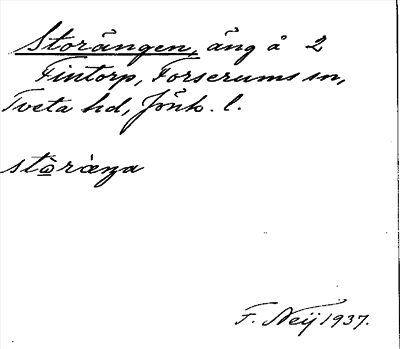 Storängen, äng å 2
Fintorp, Forserums sn,
Tveta hd, Jönk. l.
F. Neij 1937.